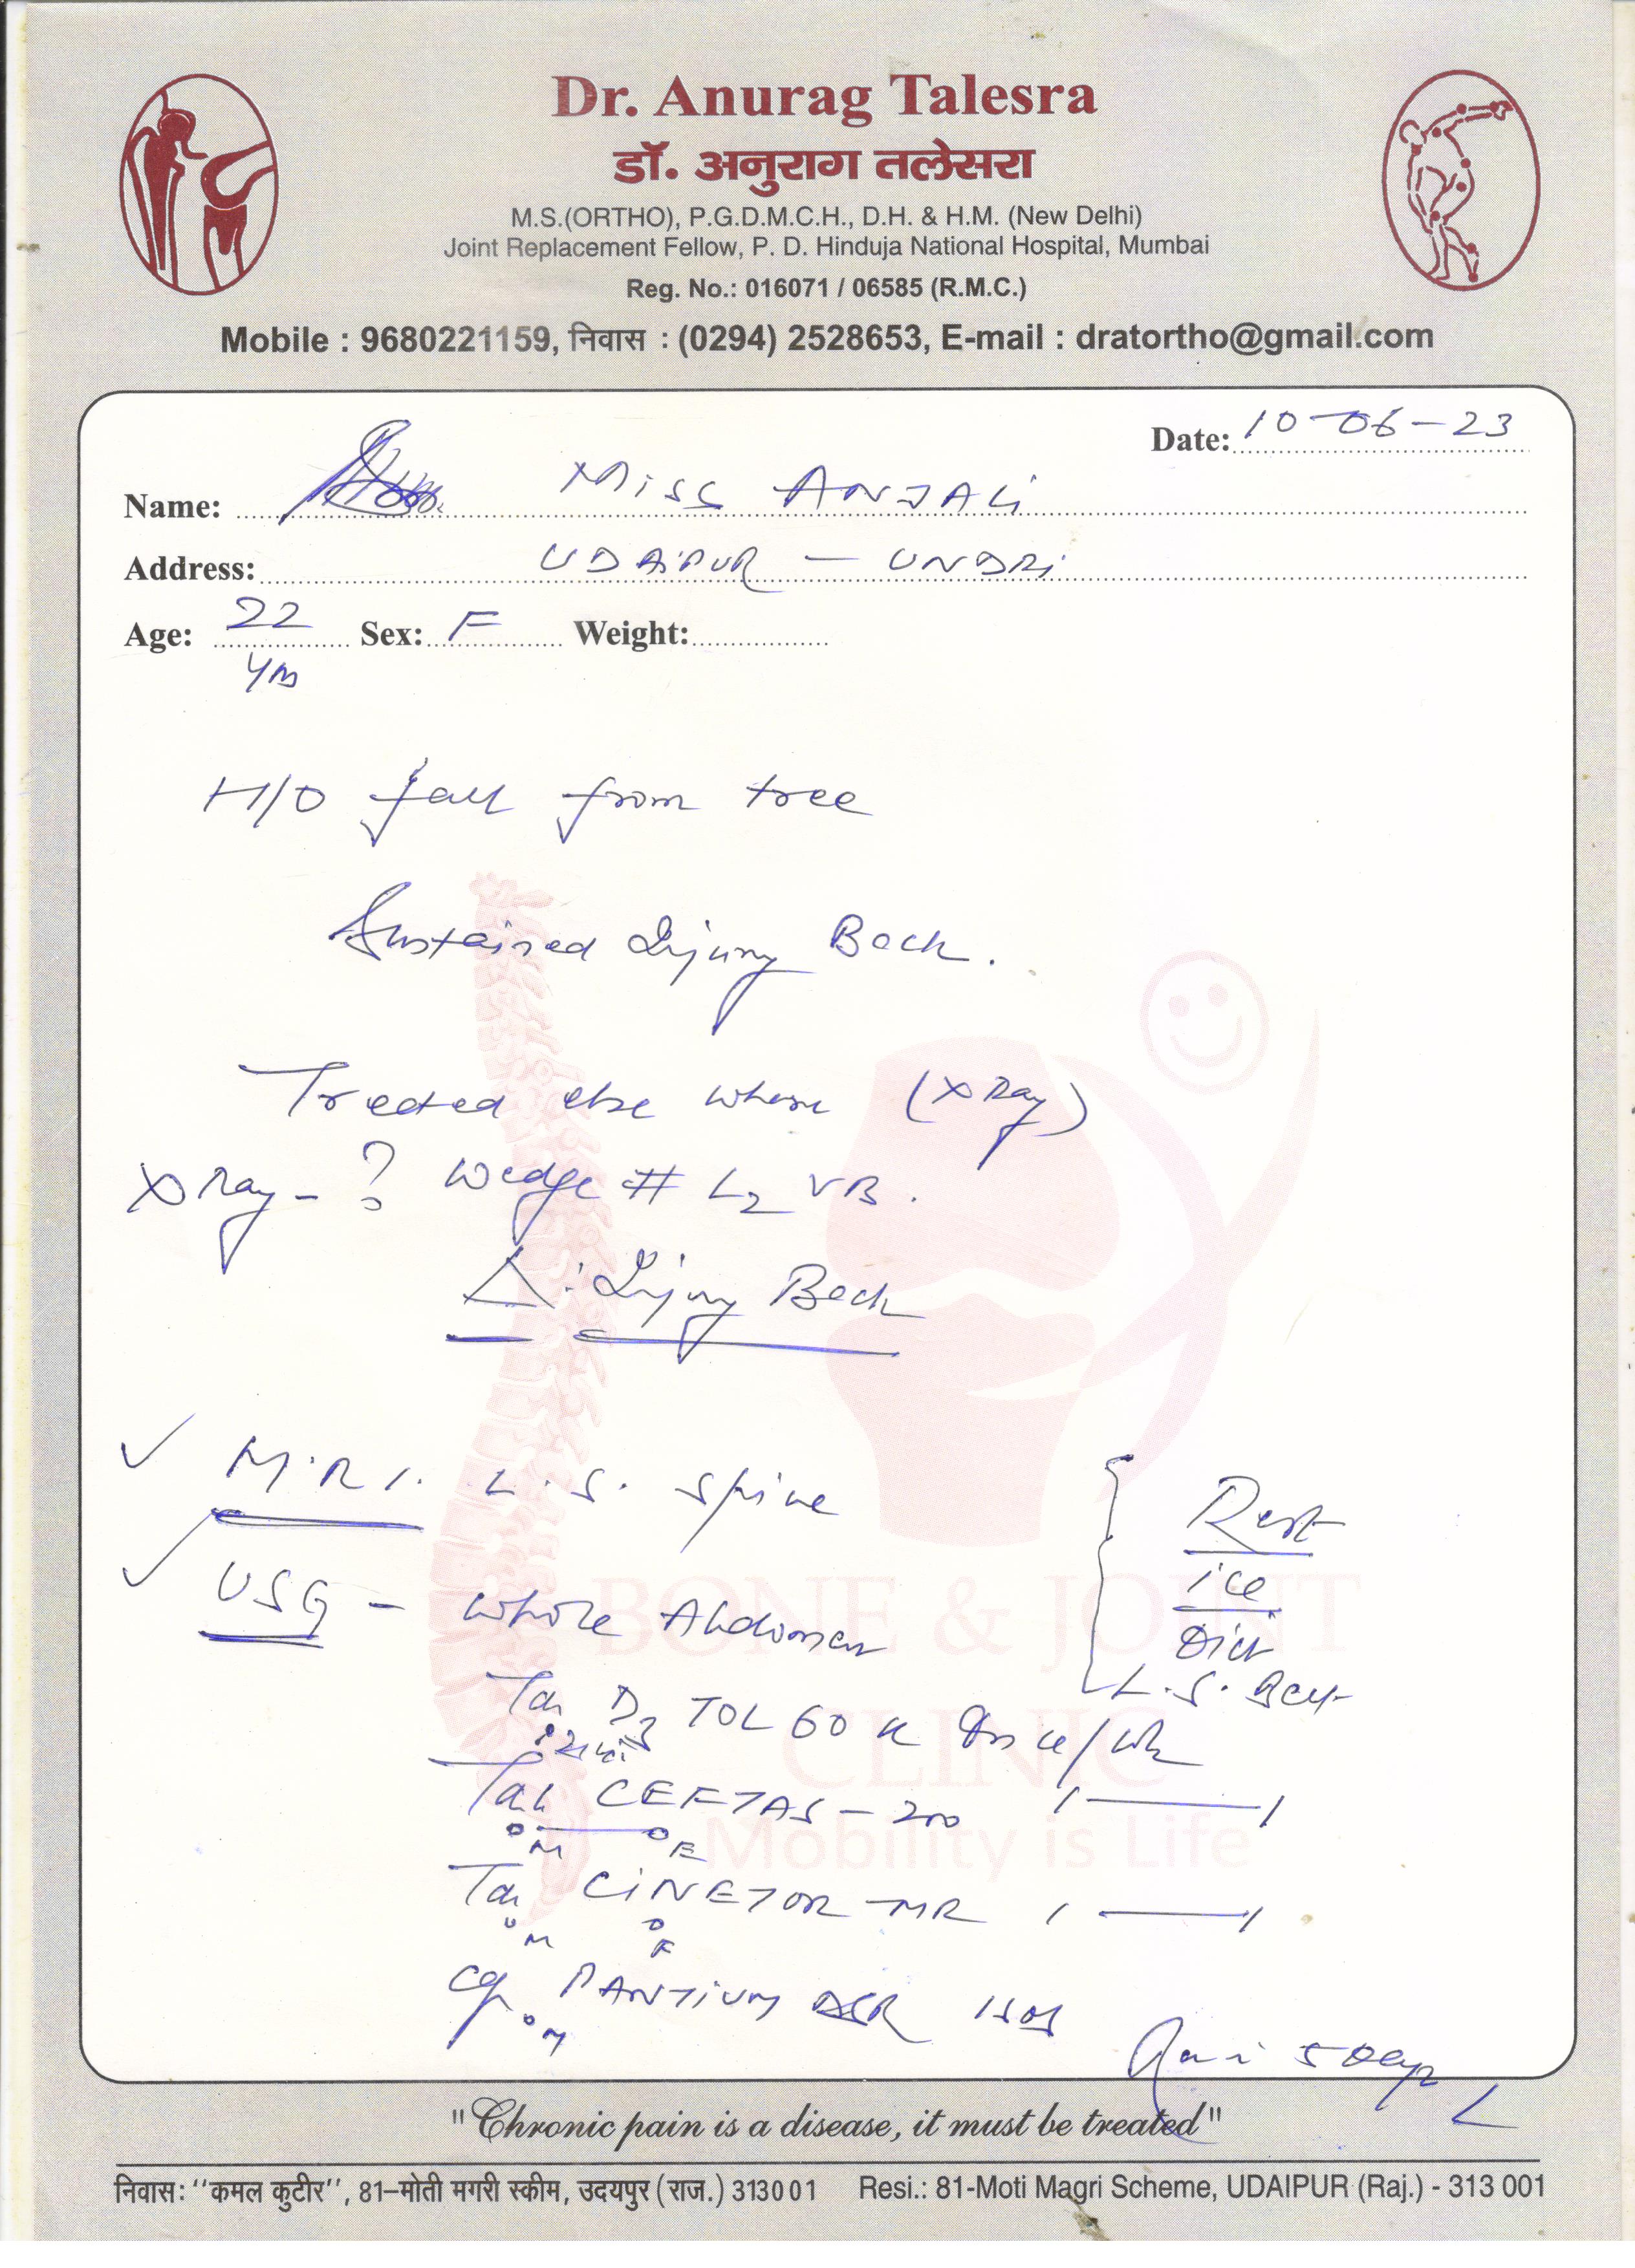 Dr. Anurag Talesra
डॉ. अनुराग तलेसरा
M.S.(ORTHO), P.G.D.M.C.H., D.H. & H.M. (New Delhi)
Joint Replacement Fellow, P. D. Hinduja National Hospital, Mumbai
Reg. No.: 016071 / 06585 (R.M.C.)
Mobile : 9680221159, निवास : (0294) 2528653, E-mail : dratortho@gmail.com
Date: 10-06-23
Name: Miss ANJALi
Address: UDAiPUR - UNDRi
Age: 22 Sex: F Weight:
H/O fall from tree
Sustained Injury Back.
Treated else where (X Ray)
X Ray - ? Wedge # L2 VB.
Δ: Injury Back
✓ M.R.I. L.S. Spine
✓ USG - Whole Abdomen
Rest
ice
Diet
L.S. Belt
Tab D3 TOL 60 K Once/Wk
Tab CEFTAS - 200
M E
Tab CiNETOR - MR
M E
Cap PANTiUM DSR
M
BONE & JOINT
CLINIC
Mobility is Life
"Chronic pain is a disease, it must be treated"
निवास: ''कमल कुटीर'', 81–मोती मगरी स्कीम, उदयपुर (राज.) 313001 Resi.: 81-Moti Magri Scheme, UDAIPUR (Raj.) - 313 001